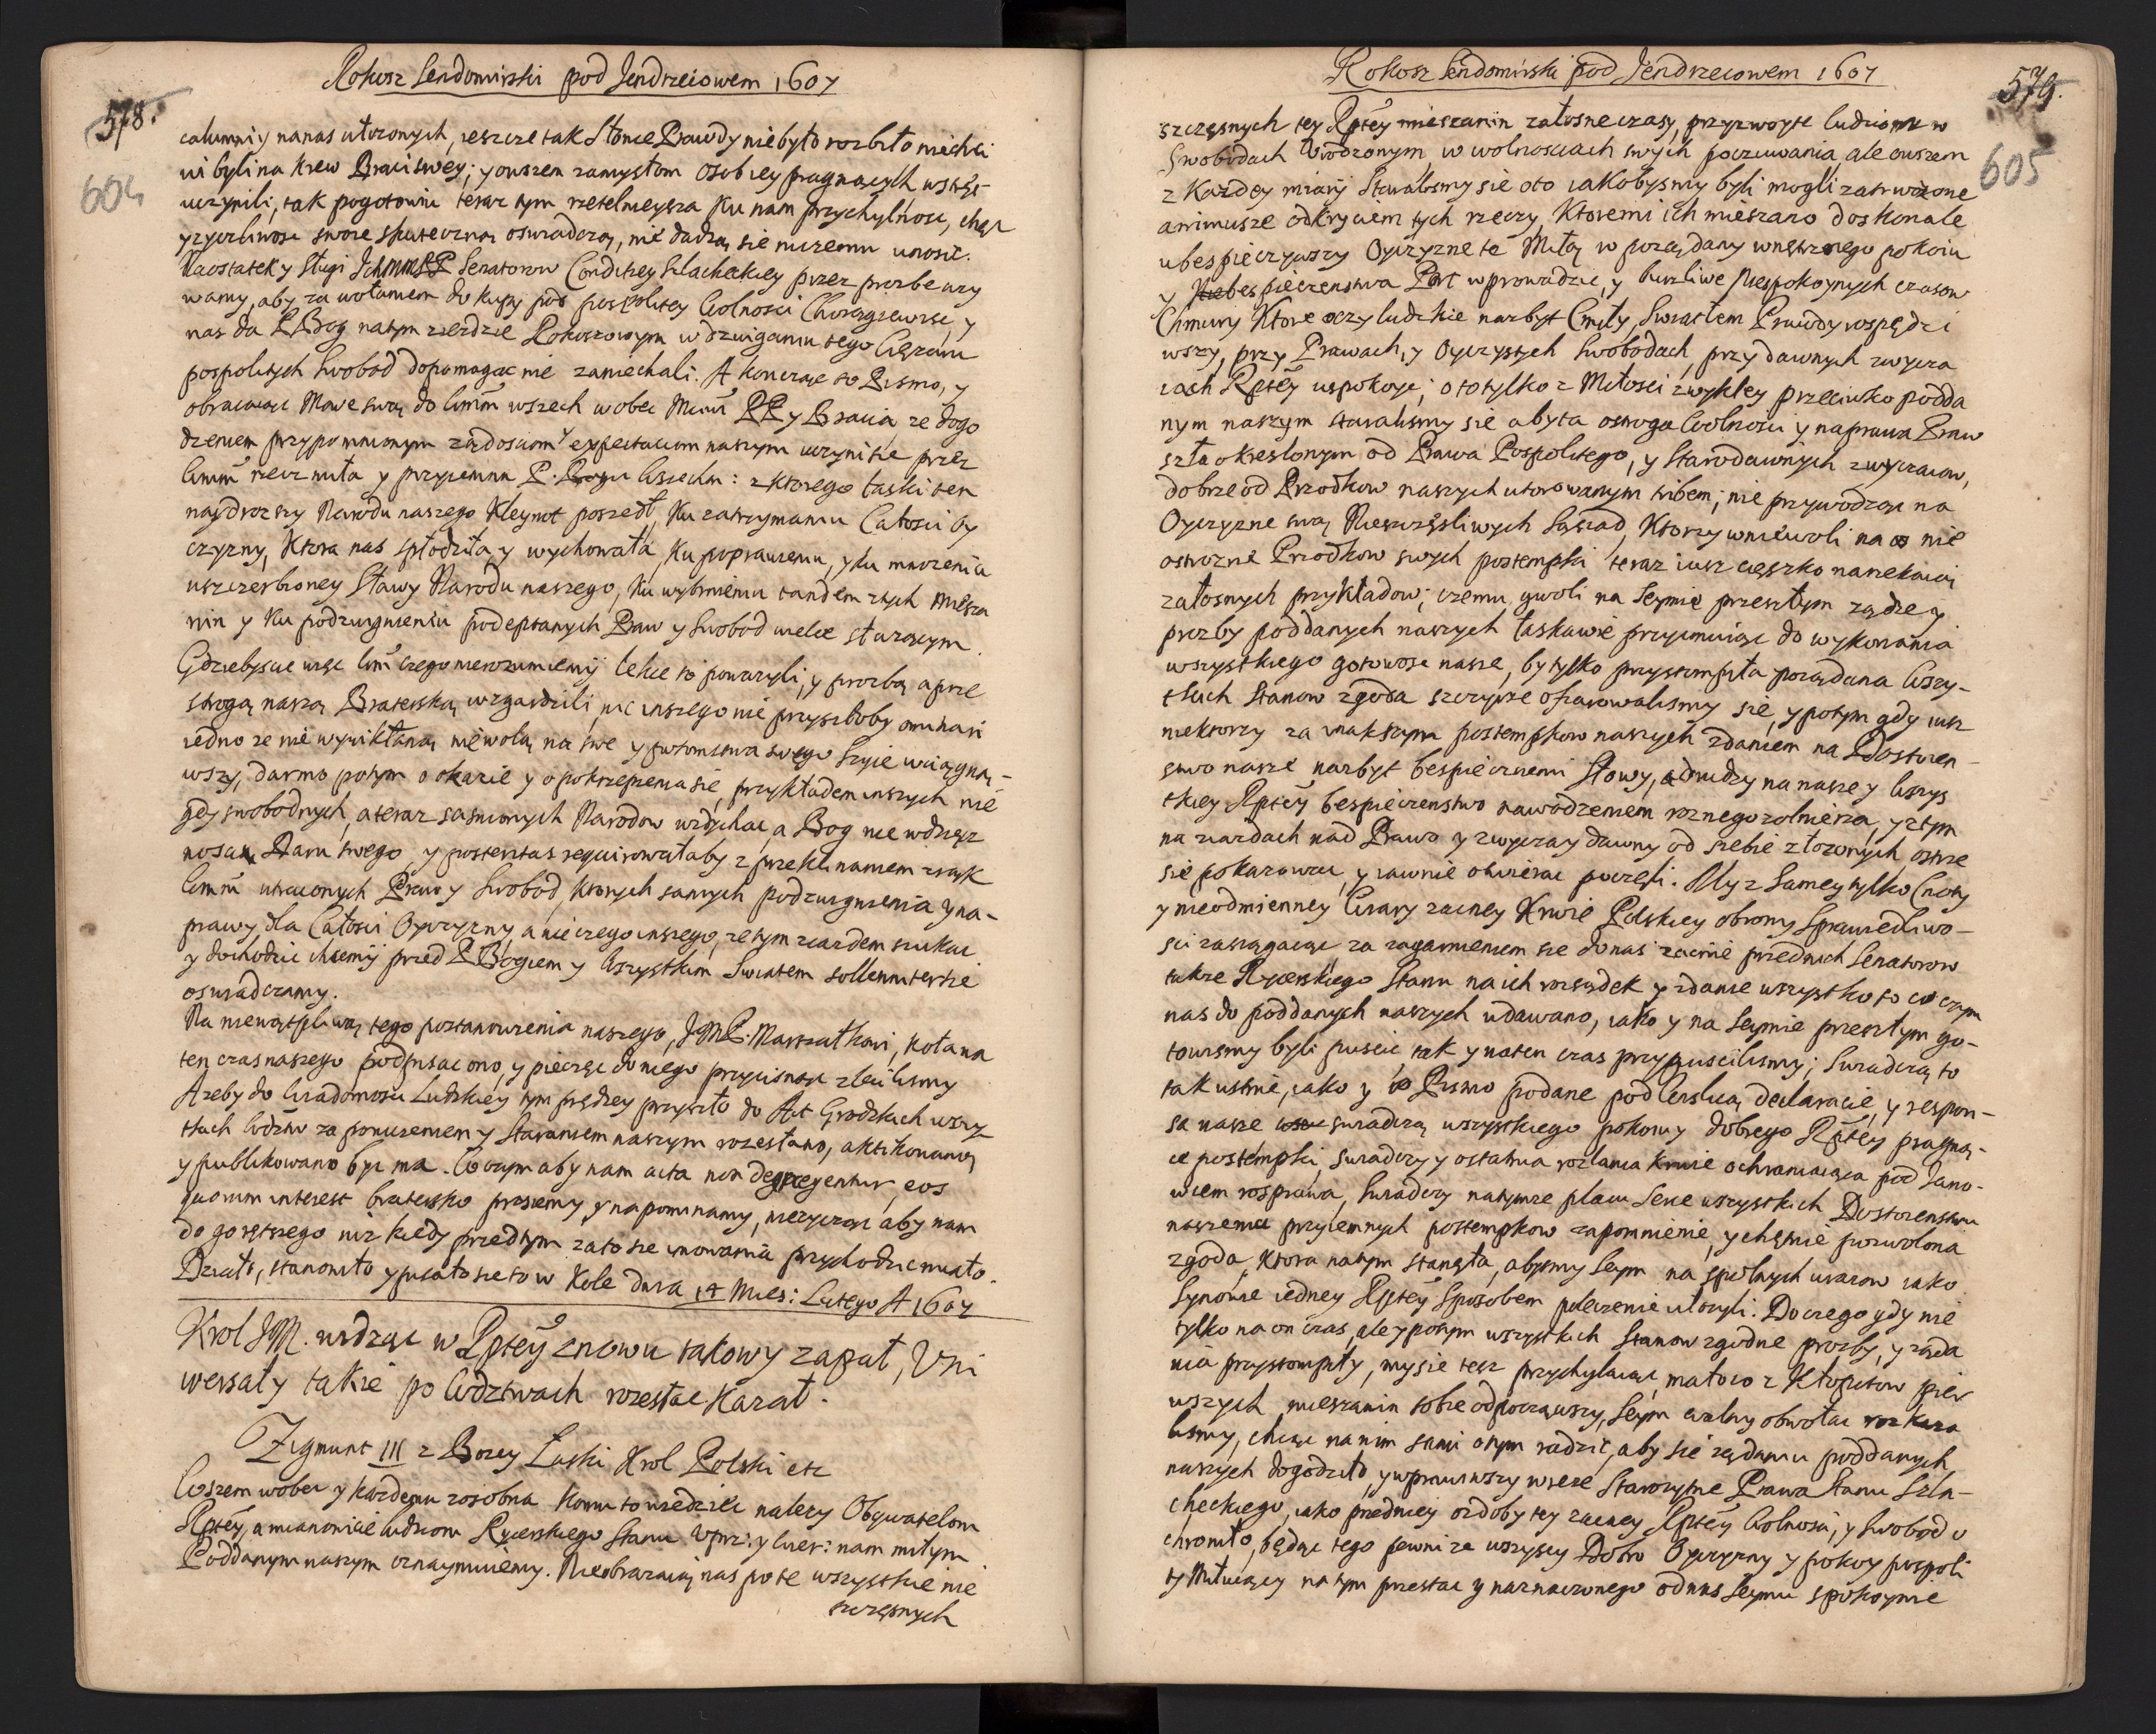 Rokosz Sendomirski pod Jendrzeiowem 1607
578.
604
calumniy na nas utoczonych, ieszcze tak Słonce Prawdy nie było rozbiło niechci
wi byli na krew Braci swey; y owszem zamysłom osob iey pragnących wstręt
uczynili, tak pogotowiu teraz tym rzetelnieysza ku nam przychylnosc, chęc
y zyczliwosc swoie skuteczną oswiadczą, nie dadzą się niczemu unosic.
Naostatek y Sługi Ichmms PP Senatorow Conditiey Szlacheckiey przez prozbe wzy
wamy, aby za wołaniem do kupy pod pospolitey Wolnosci Chorągiewsię, y
nas da P Bog na tym zieżdzie Rokoszowym w dzwiganiu tego Ciężaru
pospolitych Swobod dopomagac nie zaniechali. A koncząc to Pismo, y
obracaiąc Mowe swą do Wmm wszech wobec Mciwi PP y Bracia, ze dogo
dzeniem przypomnionym żądosciom y expectaciom naszym uczynicie przez
Wmm rzecz miła y przyiemna P. Bogu Wszechm: z ktorego łaski ten
naydrozszy Narodu naszego Kleynot poszedł, Ku zatrzymaniu Całosci Oy
czyzny, Ktora nas spłodziła y wychowała, Ku poprawieniu, y ku mnożenia
uszczerbioney Sławy Narodu naszego, Ku wybrnieniu tandem z tych miesza
nin y Ku podzwignieniu podeptanych Praw y Swobod wielce starszym.
Gdziebyscie więc Wm czego nierozumiemy lekce to poważyli, y prozbą a prze
strogą naszą Braterską wzgardzili, nic inszego nie przyszłoby mniemasi
iedno ze nie wywikłaną niewolą na swe y potomstwa swego Szyie wciągną-
wszy, darmo potym o okazie y o pokrzepienia się, przykładem inszych nie
gdy swobodnych, a teraz zasmionych Narodow wzdychac, a Bog nie wdzięcz
nosci Daru swego y posteritas requirowałaby z przeklinaniem z rąk
Wmm utraconych Praw y Swobod, ktorych samych podzwignienia y na-
prawy dla Całosci Oyczyzny, a nieczego inszego, ze tym ziazdem szukac
y dochodzic chcemy przed P Bogiem y Wszystkim Swiatem sollenniterże
oswiadczamy.
Na niewątpliwą tego postanowienia naszego, JMP. Marszałkowi, koła na
ten czas naszego podpisac ono, y pieczęc do niego przycisnąc zlecilismy
Azeby do Wiadomosci Ludzkiey tym prędzey przyszło do Act Grodzkich wszy
tkich Wdztw za poruczeniem y Staraniem naszym rozesłano, aktikowano
y publikowano byc ma. Wczym aby nam acta non denegentur, eos
quorum interest bratersko prosiemy y napominamy, nieżycząc aby nam
do gorętszego niz kiedy przedtym zato sie umowania przychodzic miało.
Działo, stanowiło y pisało sie to w Kole dnia 14 Mies: Lutego A 1607
Krol JM. widząc w Rptey znowu takowy zapał, Vni
wersały takie po Wdztwach rozesłac Kazał.
Zigmunt III z Bozey Łaski Krol Polski etc
Wszem wobec y każdemu zosobna komu to wiedziec należy Obywatelom
Rptey, a mianowicie ludziom Rycerskiego Stanu Vprz: y wier: nam miłym
Poddanym naszym oznaymuiemy. Nie obrażaią nas po te wszystkie nie
szczęsnych
Rokosz Sendomirski pod Jendrzeiowem 1607
579.
605
szczęsnych tey Rptey mieszanin załosne czasy, przyzwoyte ludziom w
Swobodach Vrodzonym w wolnosciach swych poczuwania, ale owszem
z Kazdey miary Staralismy sie oto iakobysmy byli mogli zatrwożone
animusze odkryciem tych rzeczy, Ktoremi ich mieszano doskonale
ubespieczywszy Oyczyzne te Miłą w pożądany wnętrznego pokoiu
y bespieczenstwa Port wprowadzic, y burzliwe Niespokoynych czasow
Chmury Ktore oczy ludzkie nazbyt Cmiły, Swiatłem Prawdy rospędzi
wszy, przy Prawach, y Oyczystych Swobodach, przy dawnych zwycza
iach Rptey uspokoyc; oto tylko z Miłosci zwykłey przeciwko podda
nym naszym staralismy się aby ta ostroga Wolnosci y naprawa Praw
szła okreslonym od Prawa Pospolitego, y Starodawnych zwyczaiow,
dobrze od Przodkow naszych utorowanym tribem; nie przywodząc na
Oyczyzne swą Nieszczęsliwych Sąsiad, Ktorzy w niewoli na nie
ostrozne Przodkow swych postempki teraz iusz cięszko narzekaią
załosnych przykładow; czemu gwoli na Seymie przeszłym żądze y
prozby poddanych naszych łaskawie przyimuiąc do wykonania
wszystkiego gotowosc nasze, by tylko przystompiła pożądana Wszy-
tkich Stanow zgoda szczyrze ofiarowalismy się, y potym gdy iusz
niektorzy za znaksszym postempkow naszych zdaniem na Dostoien-
stwo nasze nazbyt bespiecznemi Słowy, a drudzy na nasze y Wszys
tkiey Rptey bespieczenstwo nawodzeniem roznego zolnierza, y ztym
na ziazdach nad Prawo y zwyczay dawny od siebie złozonych ostrze
się pokazowac, y iawnie otwierac poczęli. My z Samey tylko Cnoty
y nieodmienney Wiary zacney Krwie Polskiey obrony Sprawiedliwo-
sci zasiągaiąc za zagarnieniem sie do nas zacnie przednich Senatorow
takze Rycerskiego Stanu na ich rozsądek y zdanie wszystko to co czym
nas do poddanych naszych udawano, iako y na Seymie przeszłym go-
towismy byli puscic, tak y na ten czas przypuscilismy; Swiadczą to
tak ustnie, iako y Pismo podane pod Wislicą declaracie, y respon-
sa nasze swiadczą wszystkiego pokoiu y dobrego Rptey pragną-
ce postempki, swiadczy y ostatnia rozlania krwie ochraniaiąca pod Jano-
wcem rosprawa, Swiadczy natymze placu Serce wszystkich Dostoienstwu
naszemu przyiemnych postempkow zapomnienie, y chętnie pozwolona
zgoda, Ktora natym stanęła, abysmy Seym na spolnych urazow iako
Synowie iedney Rptey Sposobem puleczenie utoczyli. Do czego gdy nie
tylko na on czas, ale y potym wszystkich Stanow zgodne prozby, y żąda
nia przystompiły, mysie tesz przychylaiąc, mało co z Kłopotow pier
wszych mieszanin sobie odpocząwszy, Seym walny obwołac rozkaza
lismy, chcąc na nim sami o tym radzic, aby się żądaniu poddanych
naszych dogodziło, y wprawiwszy w ieze Starozytne Prawa Stanu Szla-
checkiego, iako przedniey ozdoby tey zacney Rptey Wolnosci, y Swobod u
chroniło, będąc tego pewni że wszyscy Dobro Oyczyzny y pokoy pospoli
ty Miłuiący na tym przestac y naznaczonego od nas Seymu spokoynie